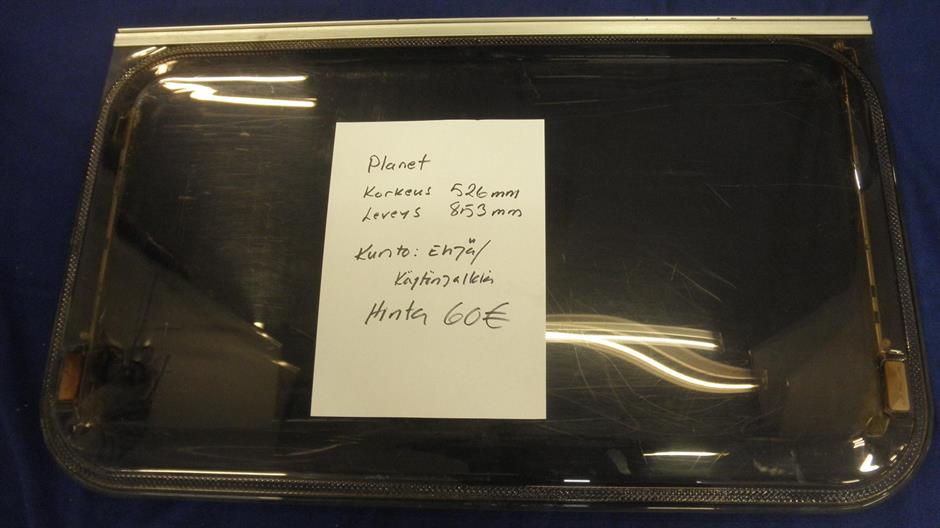 Planet
Korkeus 526mm
Leveys 853mm
Kunto: Ehjä/
Käytinjälkiä
Hinta 60€